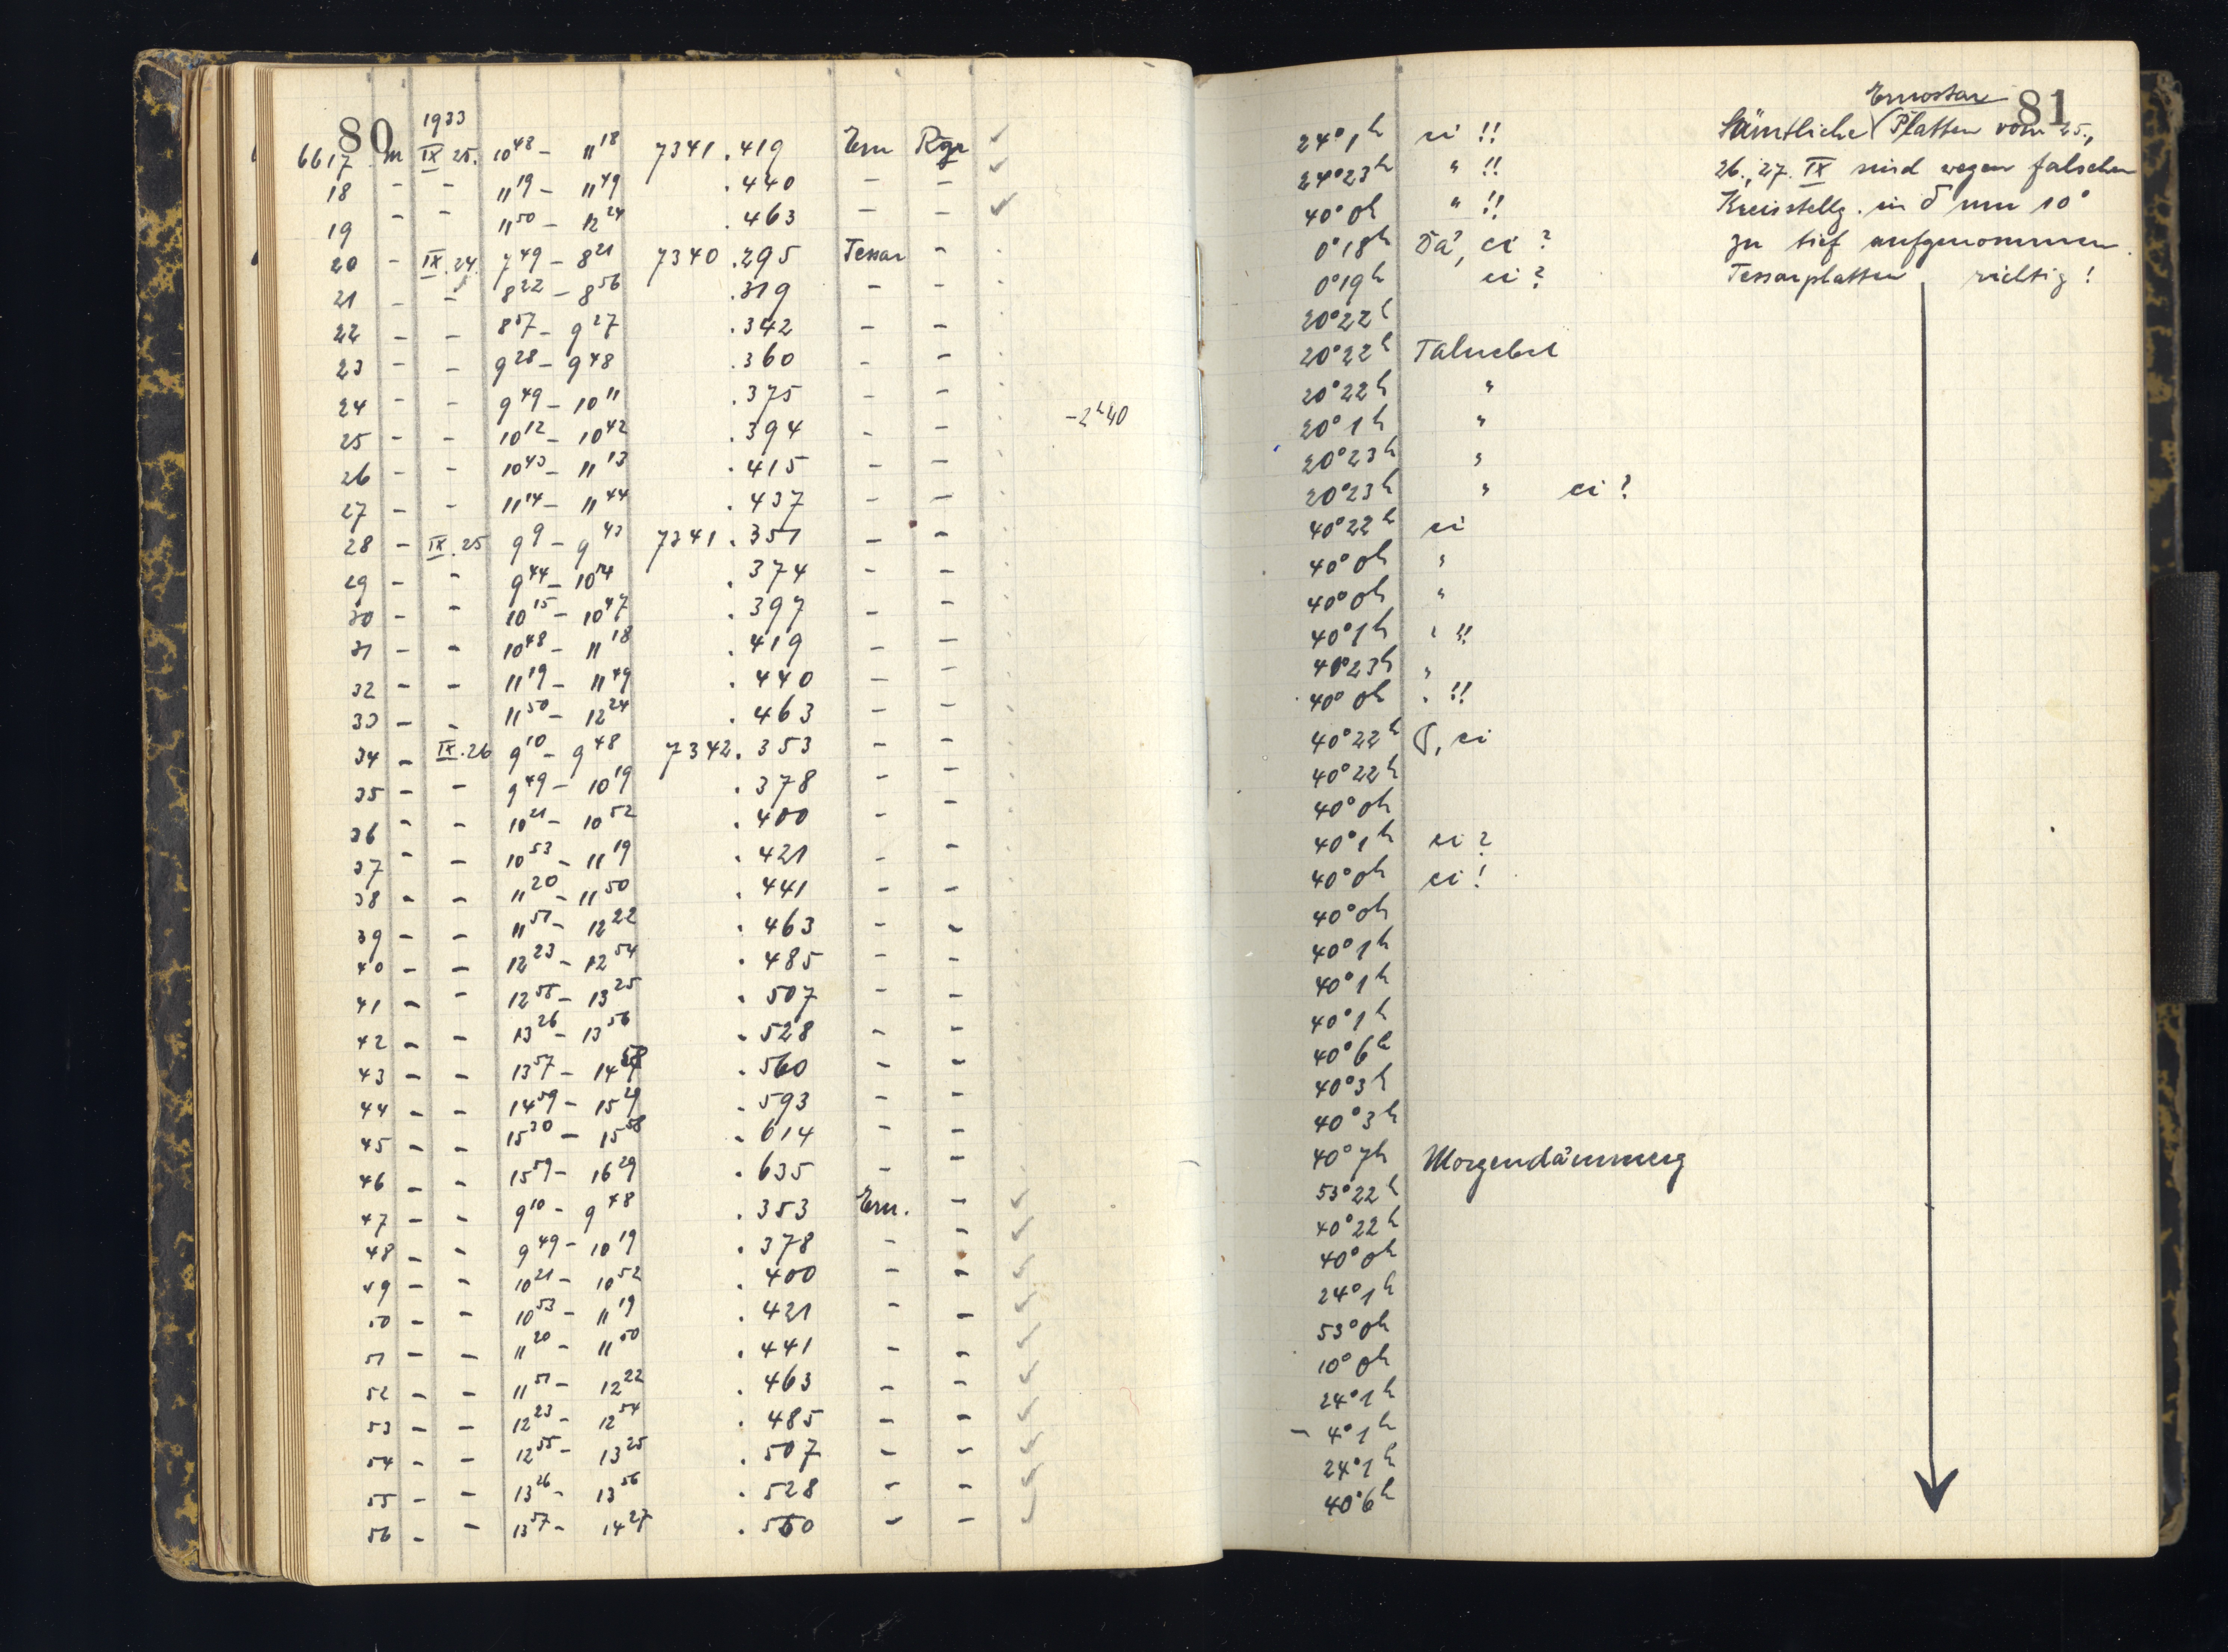 80
1933
6617 m IX 25. 10⁴⁸ – 11¹⁸ 7341.419 Ern Rgr ✓
18 – – 11¹⁹ – 11⁴⁹ .440 – – ✓
19 – – 11⁵⁰ – 12²⁴ .463 – – ✓
20 – IX.24. 7⁴⁹ – 8²¹ 7340.295 Tessar –
21 – – 8²² – 8⁵⁶ .319 – –
22 – – 8⁵⁷ – 9²⁷ .342 – –
23 – – 9²⁸ – 9⁴⁸ .360 – –
24 – – 9⁴⁹ – 10¹¹ .375 – –
25 – – 10¹² – 10⁴² .394 – – –2ʰ40
26 – – 10⁴³ – 11¹³ .415 – –
27 – – 11¹⁴ – 11⁴⁴ .437 – –
28 – IX.25 9⁹ – 9⁴³ 7341.351 – –
29 – – 9⁴⁴ – 10¹⁴ .374 – –
30 – – 10¹⁵ – 10⁴⁷ .397 – –
31 – – 10⁴⁸ – 11¹⁸ .419 – –
32 – – 11¹⁹ – 11⁴⁹ .440 – –
33 – – 11⁵⁰ – 12²⁴ .463 – –
34 – IX.26 9¹⁰ – 9⁴⁸ 7342.353 – –
35 – – 9⁴⁹ – 10¹⁹ .378 – –
36 – – 10²¹ – 10⁵² .400 – –
37 – – 10⁵³ – 11¹⁹ .421 – –
38 – – 11²⁰ – 11⁵⁰ .441 – –
39 – – 11⁵¹ – 12²² .463 – –
40 – – 12²³ – 12⁵⁴ .485 – –
41 – – 12⁵⁵ – 13²⁵ .507 – –
42 – – 13²⁶ – 13⁵⁶ .528 – –
43 – – 13⁵⁷ – 14⁵⁸ .560 – –
44 – – 14⁵⁹ – 15²⁹ .593 – –
45 – – 15³⁰ – 15⁵⁸ .614 – –
46 – – 15⁵⁹ – 16²⁹ .635 – –
47 – – 9¹⁰ – 9⁴⁸ .353 Ern. – ✓
48 – – 9⁴⁹ – 10¹⁹ .378 – – ✓
49 – – 10²¹ – 10⁵² .400 – – ✓
50 – – 10⁵³ – 11¹⁹ .421 – – ✓
51 – – 11²⁰ – 11⁵⁰ .441 – – ✓
52 – – 11⁵¹ – 12²² .463 – – ✓
53 – – 12²³ – 12⁵⁴ .485 – – ✓
54 – – 12⁵⁵ – 13²⁵ .507 – – ✓
55 – – 13²⁶ – 13⁵⁶ .528 – – ✓
56 – – 13⁵⁷ – 14²⁷ .560 – – ✓
81
Ernostar
Sämtliche Platten vom 25.,
26., 27. IX sind wegen falscher
Kreisstellg. in δ um 10°
zu tief aufgenommen.
Tessarplatten richtig!
24° 1ʰ ci !!
24° 23ʰ " !!
40° 0ʰ " !!
0° 18ʰ Dä?, ci ?
0° 19ʰ ci ?
20° 22ʰ
20° 22ʰ Talnebel
20° 22ʰ "
20° 1ʰ "
20° 23ʰ "
20° 23ʰ " ci ?
40° 22ʰ ci
40° 0ʰ "
40° 0ʰ "
40° 1ʰ " !!
40° 23ʰ "
40° 0ʰ " !!
40° 22ʰ ci
40° 22ʰ
40° 0ʰ
40° 1ʰ ci ?
40° 0ʰ ci !
40° 0ʰ
40° 1ʰ
40° 1ʰ
40° 1ʰ
40° 6ʰ
40° 3ʰ
40° 3ʰ
40° 7ʰ Morgendämmerg
53° 22ʰ
40° 22ʰ
40° 0ʰ
24° 1ʰ
53° 0ʰ
10° 0ʰ
24° 1ʰ
– 4° 1ʰ
24° 1ʰ
40° 6ʰ